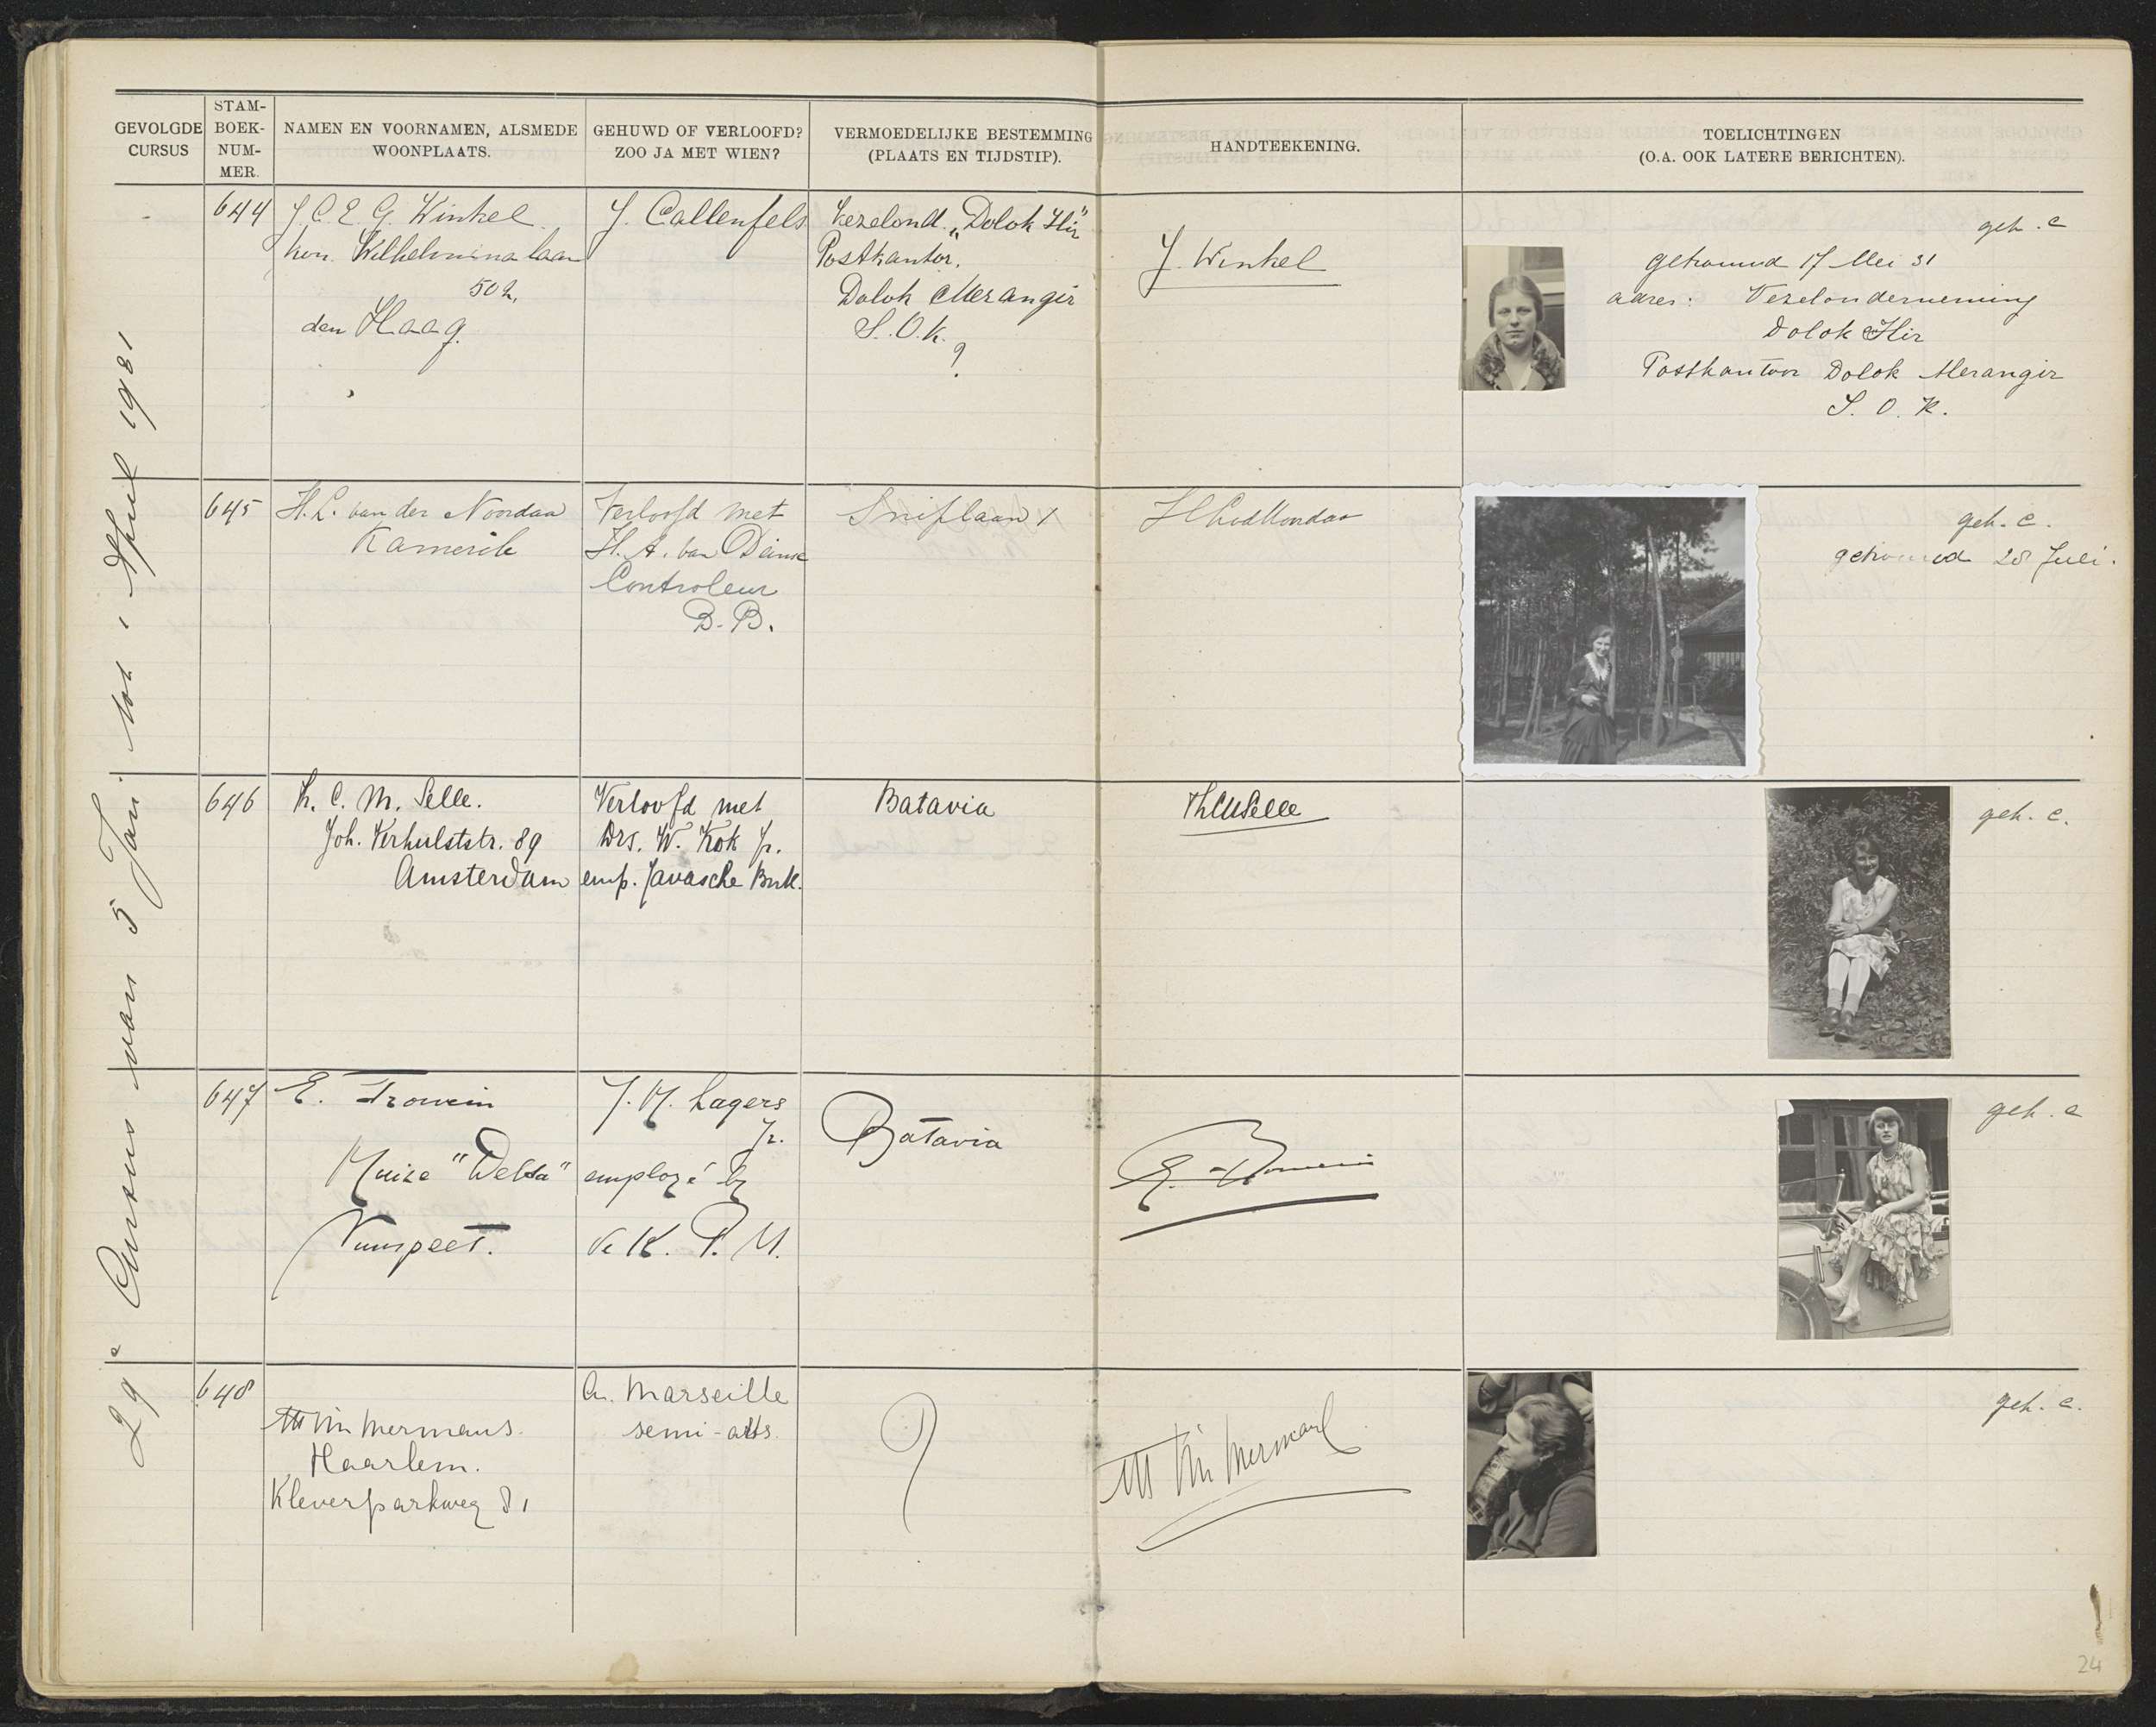 GEVOLGDE
CURSUS
STAM-
BOEK-
NUM-
MER.
NAMEN EN VOORNAMEN, ALSMEDE
WOONPLAATS.
GEHUWD OF VERLOOFD?
ZOO JA MET WIEN?
VERMOEDELIJKE BESTEMMING
(PLAATS EN TIJDSTIP).
HANDTEEKENING.
TOELICHTINGEN
(O.A. OOK LATERE BERICHTEN).
29e Cursus van 5 Jan tot 1 April 1931
644
J. C. E. G. Winkel
Kon. Wilhelmina laan
den Haag.
J. Callenfels
Vezelond. „Dolok Ilir"
Postkantor.
Dolok Merangir
S. O. K.
?
J. Winkel
geh. c
getrouwd 17 Mei 31
adres: Vezelonderneming
Dolok Ilir
Postkantoor Dolok Merangir
S. O. K.
645
H. L. van der Noordaa
Kamerik
Verloofd met
H. A. van
Controleur
B. B.
geh. c.
getrouwd 28 Juli.
646
C. M. Selle.
Joh. Verhulststr. 89
Amsterdam
Verloofd met
Drs. W. Kok Jr.
emp. Javasche Bnk.
Batavia
ThCMSelle
geh. c.
647
E. Trowein
Huize "Delta"
Nunspeet.
J. H. Lagers
Jr.
employé by
de K. P. M.
Batavia
E. Trowein
geh. c
648
Timmermans.
Haarlem.
Kleverparkweg 81
Marseille
semi-arts.
?
Timmermans
geh. c.
24